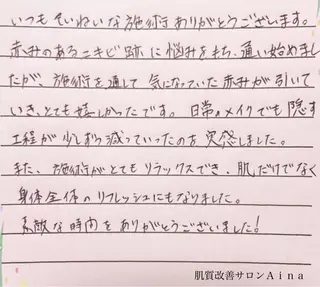 いつもていねいな施術ありがとうございます。
赤みのあるニキビ跡に悩みをもち、通い始めまし
たが、施術を通して気になっていた赤みが引いて
いき、とても嬉しかったです。日常のメイクでも隠す
工程が少しずつ減っていったのを実感しました。
また、施術がとてもリラックスでき、肌だけでなく
身体全体のリフレッシュにもなりました。
素敵な時間をありがとうございました!
肌質改善サロンAina